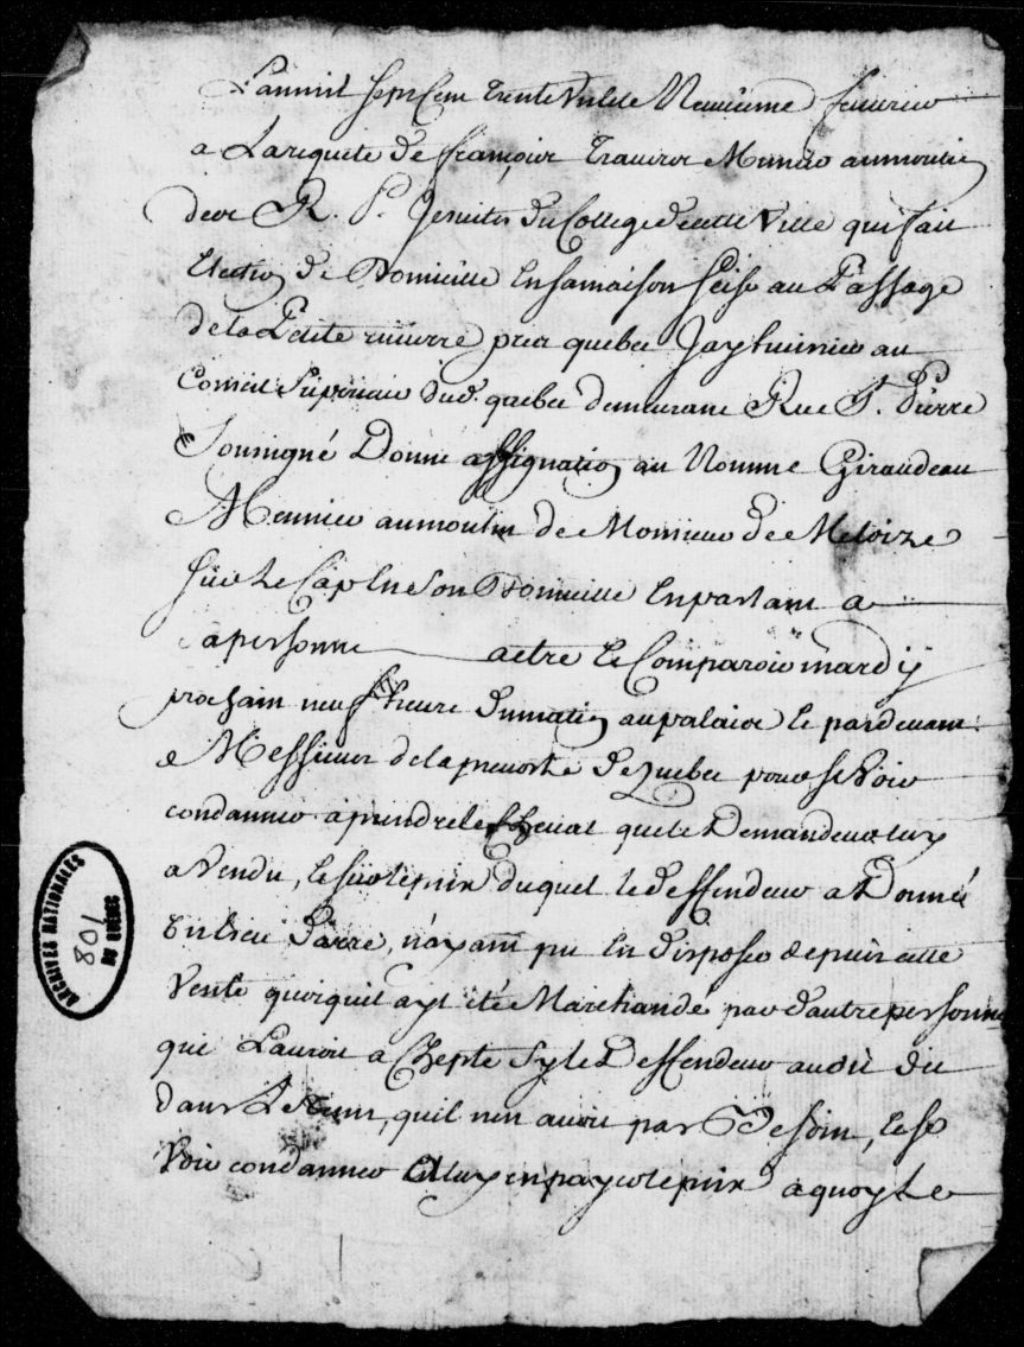 L'an mil sept Cent trente Un le Neuvieme feuvrier
a La requête de françois Trauers Munier au moulin
des R. P. Jesuites du College de cette Ville qui fait
Election de Domicille En sa maison scise au Passage
de la Petite riuierre pres quebec Jay huissier au
Conseil Superieur dud. quebec demeurant Rue St. Pierre
Soussigné Donné assignation au Nommé Giraudeau
Meunier au moulin de Monsieur de Meloize
sur Le Cap En son Domicille En parlant a
sa personne a etre Et Comparoir mardy
prochain neuf heure du matin au palais Et pardeuant
Messieurs de la preuosté de quebec pour se Voir
condamner a prendre le Cheual que le Demandeur luy
a Vendu, Et sur le prix duquel le deffendeur a Donné
Un Ecu d'arre, n'ayant pu En disposer depuis cette
Vente quoiquil ayt été Marchandé par d'autre personne
qui Lauroit achepté sy le Deffendeur audit dit
dans Le tems, quil nen auoit pas Besoin, Et se
Voir condamner Et luy en payer le prix a quoy Le
ARCHIVES NATIONALES
801
DU QUÉBEC